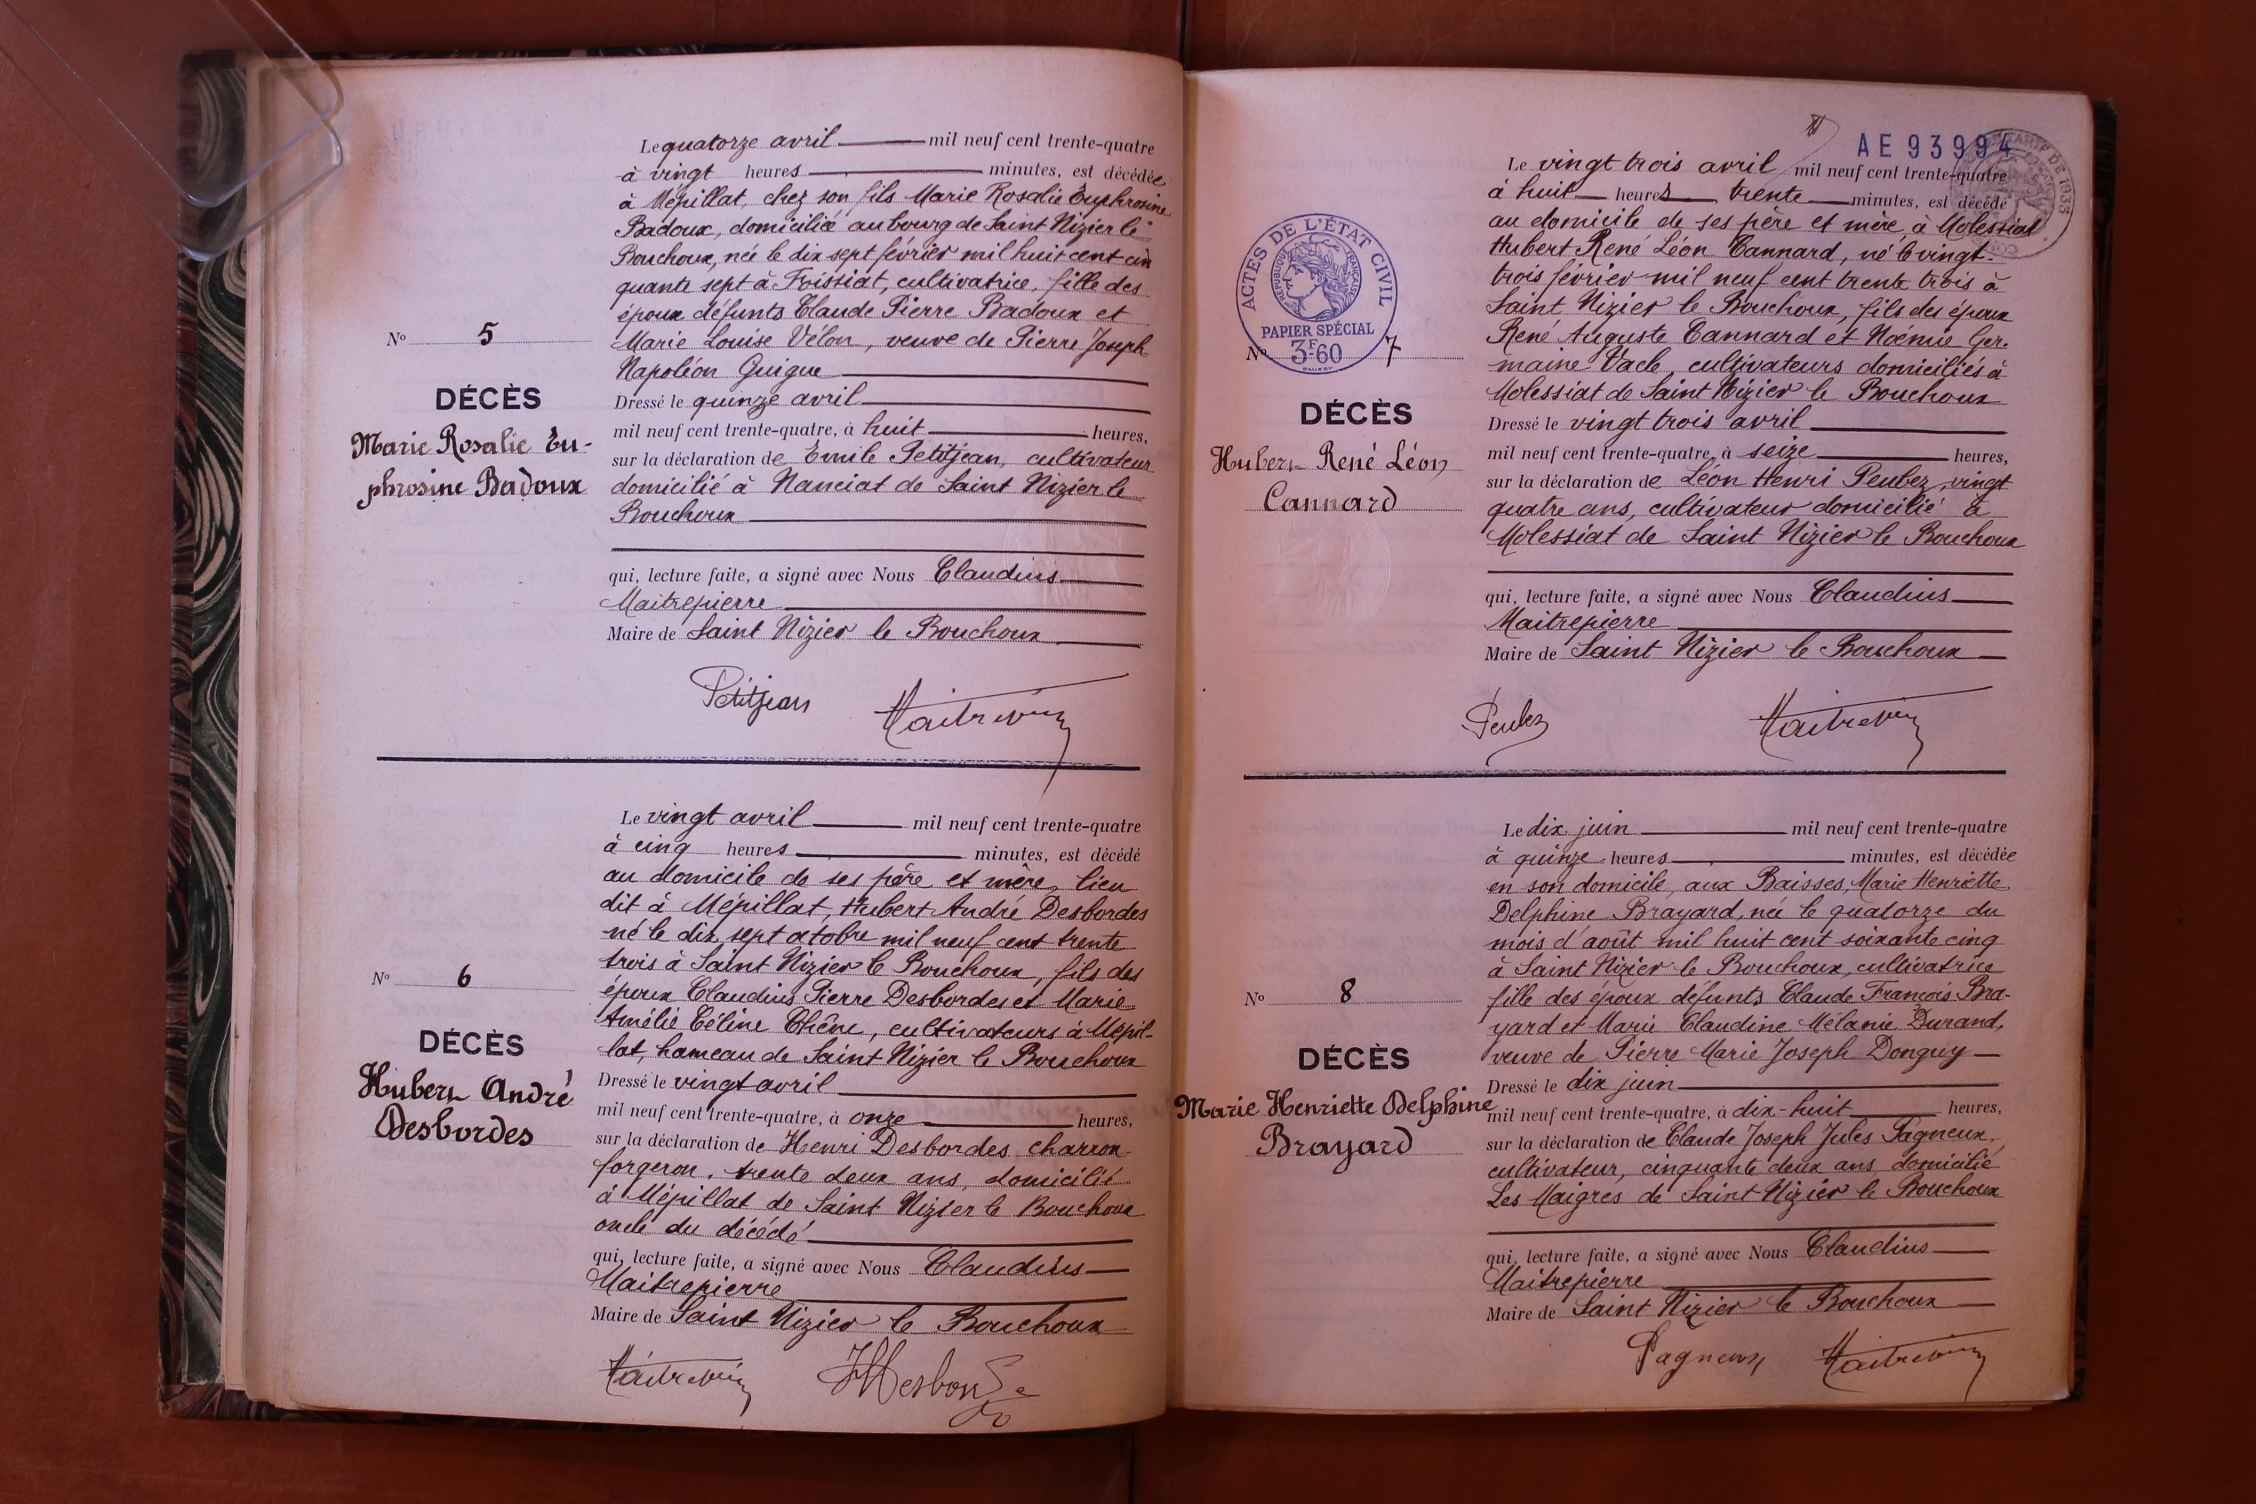 Le quatorze avril mil neuf cent trente-quatre
à vingt heures minutes, est décédée
à Mépillat, chez son fils Marie Rosalie Euphrosine
Badoux, domiciliée au bourg de Saint Nizier le
Bouchoux, née le dix sept février mil huit cent cin
quante sept à Foissiat, cultivatrice, fille des
époux défunts Claude Pierre Badoux et
Marie Louise Vélon, veuve de Pierre Joseph
Napoléon Guigue
Nº 5
DÉCÈS
Marie Rosalie Eu-
phrosine Badoux
Dressé le quinze avril
mil neuf cent trente-quatre, à huit heures,
sur la déclaration de Emile Petitjean, cultivateur
domicilié à Nanciat de Saint Nizier le
Bouchoux
qui, lecture faite, a signé avec Nous Claudius
Maitrepierre
Maire de Saint Nizier le Bouchoux
Petitjean
Le vingt avril mil neuf cent trente-quatre
à cinq heures minutes, est décédé
au domicile de ses père et mère, lieu
dit à Mépillat, Hubert André Desbordes
né le dix sept octobre mil neuf cent trente
trois à Saint Nizier le Bouchoux, fils des
époux Claudius Pierre Desbordes et Marie
Amélie Céline Chêne, cultivateurs à Mépil-
lat, hameau de Saint Nizier le Bouchoux
Nº 6
DÉCÈS
Hubert André
Desbordes
Dressé le vingt avril
mil neuf cent trente-quatre, à onze heures,
sur la déclaration de Henri Desbordes charron
forgeron, trente deux ans, domicilié
à Mépillat de Saint Nizier le Bouchoux
oncle du décédé
qui, lecture faite, a signé avec Nous Claudius
Maitrepierre
Maire de Saint Nizier le Bouchoux
AE 93994
Le vingt trois avril mil neuf cent trente-quatre
à huit heures trente minutes, est décédé
au domicile de ses père et mère, à Molessiat
Hubert René Léon Cannard, né le vingt-
trois février mil neuf cent trente trois à
Saint Nizier le Bouchoux, fils des époux
René Auguste Cannard et Noémie Ger-
maine Vach, cultivateurs domiciliés à
Molessiat de Saint Nizier le Bouchoux
ACTES DE L'ÉTAT CIVIL
RÉPUBLIQUE FRANÇAISE
PAPIER SPÉCIAL
3F60
Nº 7
DÉCÈS
Hubert René Léon
Cannard
Dressé le vingt trois avril
mil neuf cent trente-quatre, à seize heures,
sur la déclaration de Léon Henri Peubez, vingt
quatre ans, cultivateur domicilié à
Molessiat de Saint Nizier le Bouchoux
qui, lecture faite, a signé avec Nous Claudius
Maitrepierre
Maire de Saint Nizier le Bouchoux
Peubez
Le dix juin mil neuf cent trente-quatre
à quinze heures minutes, est décédée
en son domicile, aux Baisses, Marie Henriette
Delphine Brayard, née le quatorze du
mois d'août mil huit cent soixante cinq
à Saint Nizier le Bouchoux, cultivatrice
fille des époux défunts Claude François Bra-
yard et Marie Claudine Mélanie Durand,
veuve de Pierre Marie Joseph Donguy
Nº 8
DÉCÈS
Marie Henriette Delphine
Brayard
Dressé le dix juin
mil neuf cent trente-quatre, à dix-huit heures,
sur la déclaration de Claude Joseph Jules Pagneux,
cultivateur, cinquante deux ans domicilié
Les Maigres de Saint Nizier le Bouchoux
qui, lecture faite, a signé avec Nous Claudius
Maitrepierre
Maire de Saint Nizier le Bouchoux
Pagneux